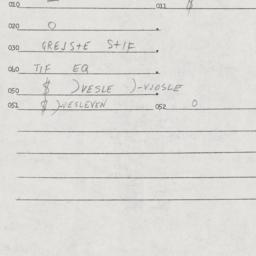 010 011 $
020 0
030 GREJSTE STIF
040 TIF EQ
050 $ )VESLE )-VIDSLE
051 $ )VESLEVEN 052 0